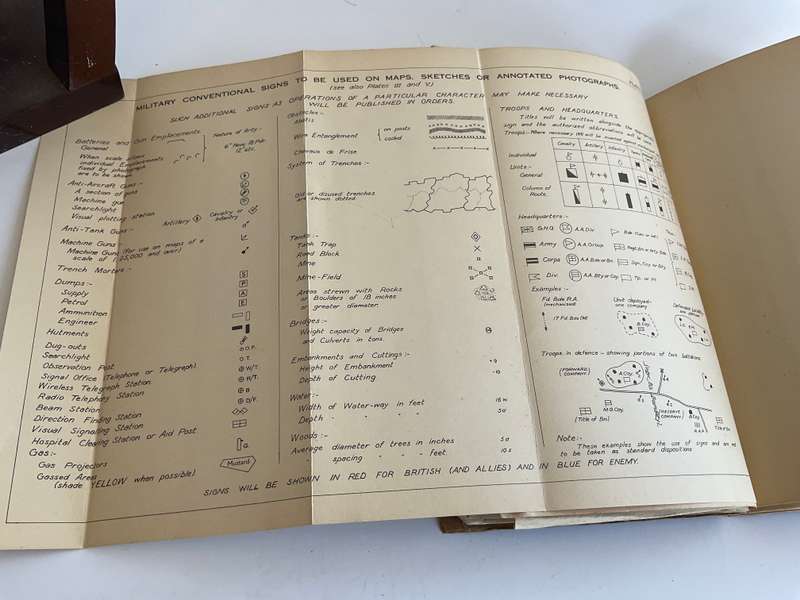 MILITARY CONVENTIONAL SIGNS TO BE USED ON MAPS, SKETCHES OR ANNOTATED PHOTOGRAPHS.
(see also Plates III and V.)
SUCH ADDITIONAL SIGNS AS OPERATIONS OF A PARTICULAR CHARACTER MAY MAKE NECESSARY
WILL BE PUBLISHED IN ORDERS.
Batteries and Gun Emplacements
General
When scale allows
individual Emplacements
fixed by photograph
are to be shown
Nature of Arty:-
6" How, 18 Pdr.
12" etc.
Anti-Aircraft Guns:-
A section of guns
Machine gun
Searchlight
Visual plotting station
Anti-Tank Guns:-
Artillery
Cavalry or
Infantry
Machine Guns:-
Machine Guns (For use on maps of a
scale of 1/25,000 and over)
Trench Mortars:-
Dumps:-
Supply
S
Petrol
P
Ammunition
A
Engineer
E
Hutments
Dug-outs
Searchlight
Observation Post
O.P.
Signal Office (Telephone or Telegraph)
T.
Wireless Telegraph Station
W/T.
Radio Telephony Station
R/T.
Beam Station
B
Direction Finding Station
D/F.
Visual Signalling Station
Hospital Clearing Station or Aid Post
Gas:-
Gas Projectors
G.
Gassed Area
(shade YELLOW when possible)
Mustard
Obstacles:-
Abatis
Wire Entanglement
on posts
coiled
Chevaux de Frise
System of Trenches:-
Old or disused trenches
are shown dotted
Tanks:-
Tank Trap
Road Block
Mine
Mine-Field
Areas strewn with Rocks
or Boulders of 18 inches
or greater diameter.
Bridges:-
Weight capacity of Bridges
and Culverts in tons.
Embankments and Cuttings:-
Height of Embankment
+9
Depth of Cutting
-10
Water:-
Width of Water-way in feet
Depth " " " "
Woods:-
Average diameter of trees in inches
" spacing " " " feet.
TROOPS AND HEADQUARTERS
Titles will be written alongside the
sign and the authorized abbreviations will be
Troops:- Where necessary
Cavalry
Artillery
Infantry
Individual
Units:-
General
Column of
Route.
Headquarters:-
G.H.Q.
A.A.Div
Army
A.A.Group
Corps
Div.
Examples:-
Fd. Bde R.A.
(mechanised)
Unit deployed-
one company
17 Fd. Bde
B.Coy
Troops in defence - showing portions of two battalions
(FORWARD
COMPANY)
A.Coy.
M.G.Coy.
(Title of Bn)
(RESERVE
COMPANY)
R.A.P.
Note:-
These examples show the use of signs and are not
to be taken as standard dispositions
SIGNS WILL BE SHOWN IN RED FOR BRITISH (AND ALLIES) AND IN BLUE FOR ENEMY.